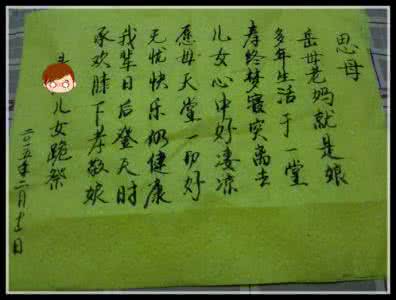 思母
岳母老妈就是娘
多年生活于一堂
寿终梦寝突离去
儿女心中好凄凉
愿母天堂一切好
无忧快乐仍健康
我辈日后登天时
承欢膝下孝敬娘
儿女跪祭
二〇一五年二月十一日